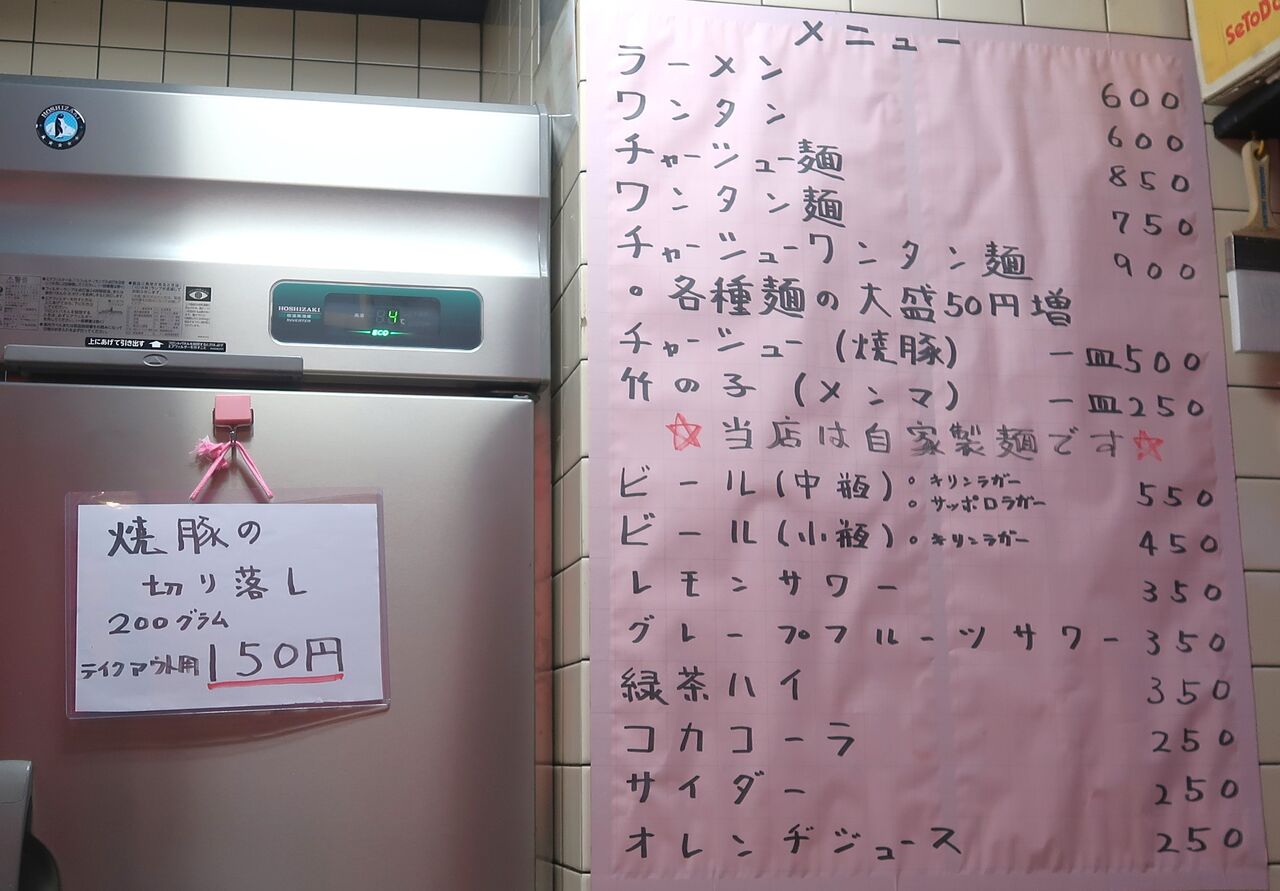 HOSHIZAKI
HOSHIZAKI
INVERTER
4℃
ECO
上にあげて引き出す
焼豚の
切り落し
200グラム
テイクアウト用150円
SeToDa
メニュー
ラーメン 600
ワンタン 600
チャーシュー麺 850
ワンタン麺 750
チャーシューワンタン麺 900
。各種麺の大盛50円増
チャーシュー(焼豚) 一皿500
竹の子(メンマ) 一皿250
☆当店は自家製麺です☆
ビール(中瓶)。キリンラガー 550
。サッポロラガー
ビール(小瓶)。キリンラガー 450
レモンサワー 350
グレープフルーツサワー 350
緑茶ハイ 350
コカコーラ 250
サイダー 250
オレンヂジュース 250